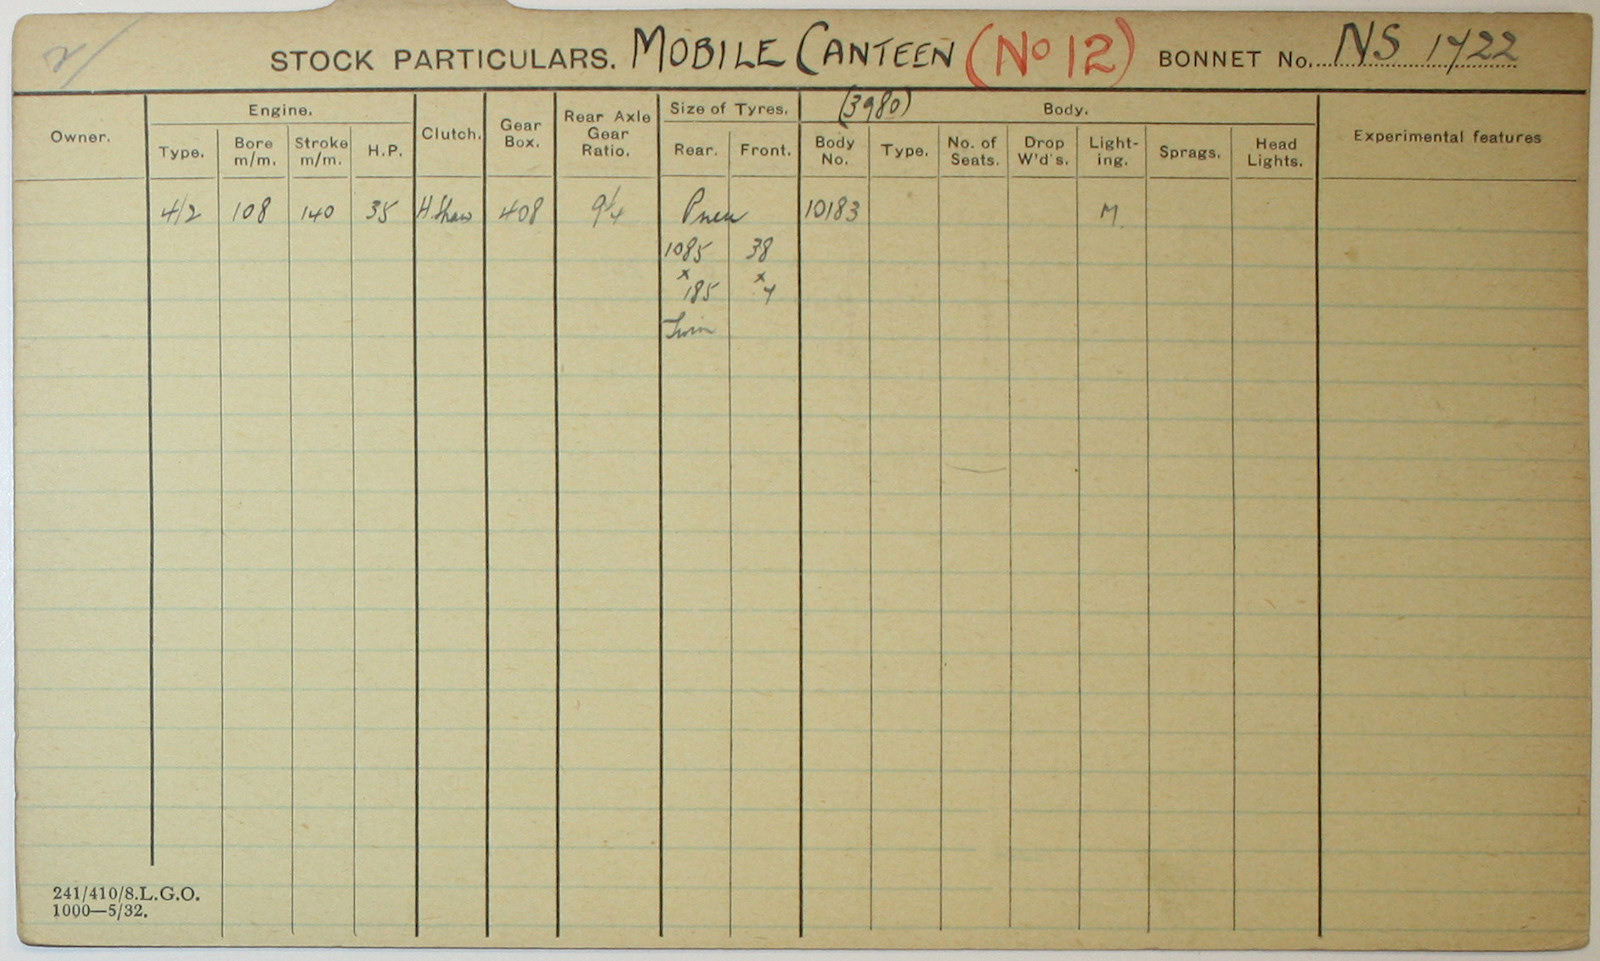 2/
STOCK PARTICULARS. MOBILE CANTEEN (No 12) BONNET No. NS 1722
Owner. Engine. Clutch. Gear Box. Rear Axle Gear Ratio. Size of Tyres. (3980) Body. Experimental features
Type. Bore m/m. Stroke m/m. H.P. Rear. Front. Body No. Type. No. of Seats. Drop W'd's. Light-ing. Sprags. Head Lights.
4/2 108 140 35 H. Shaw 408 9¼ Pneu 10183 M
1085 38
x 185 x 7
Twin
241/410/8.L.G.O.
1000—5/32.